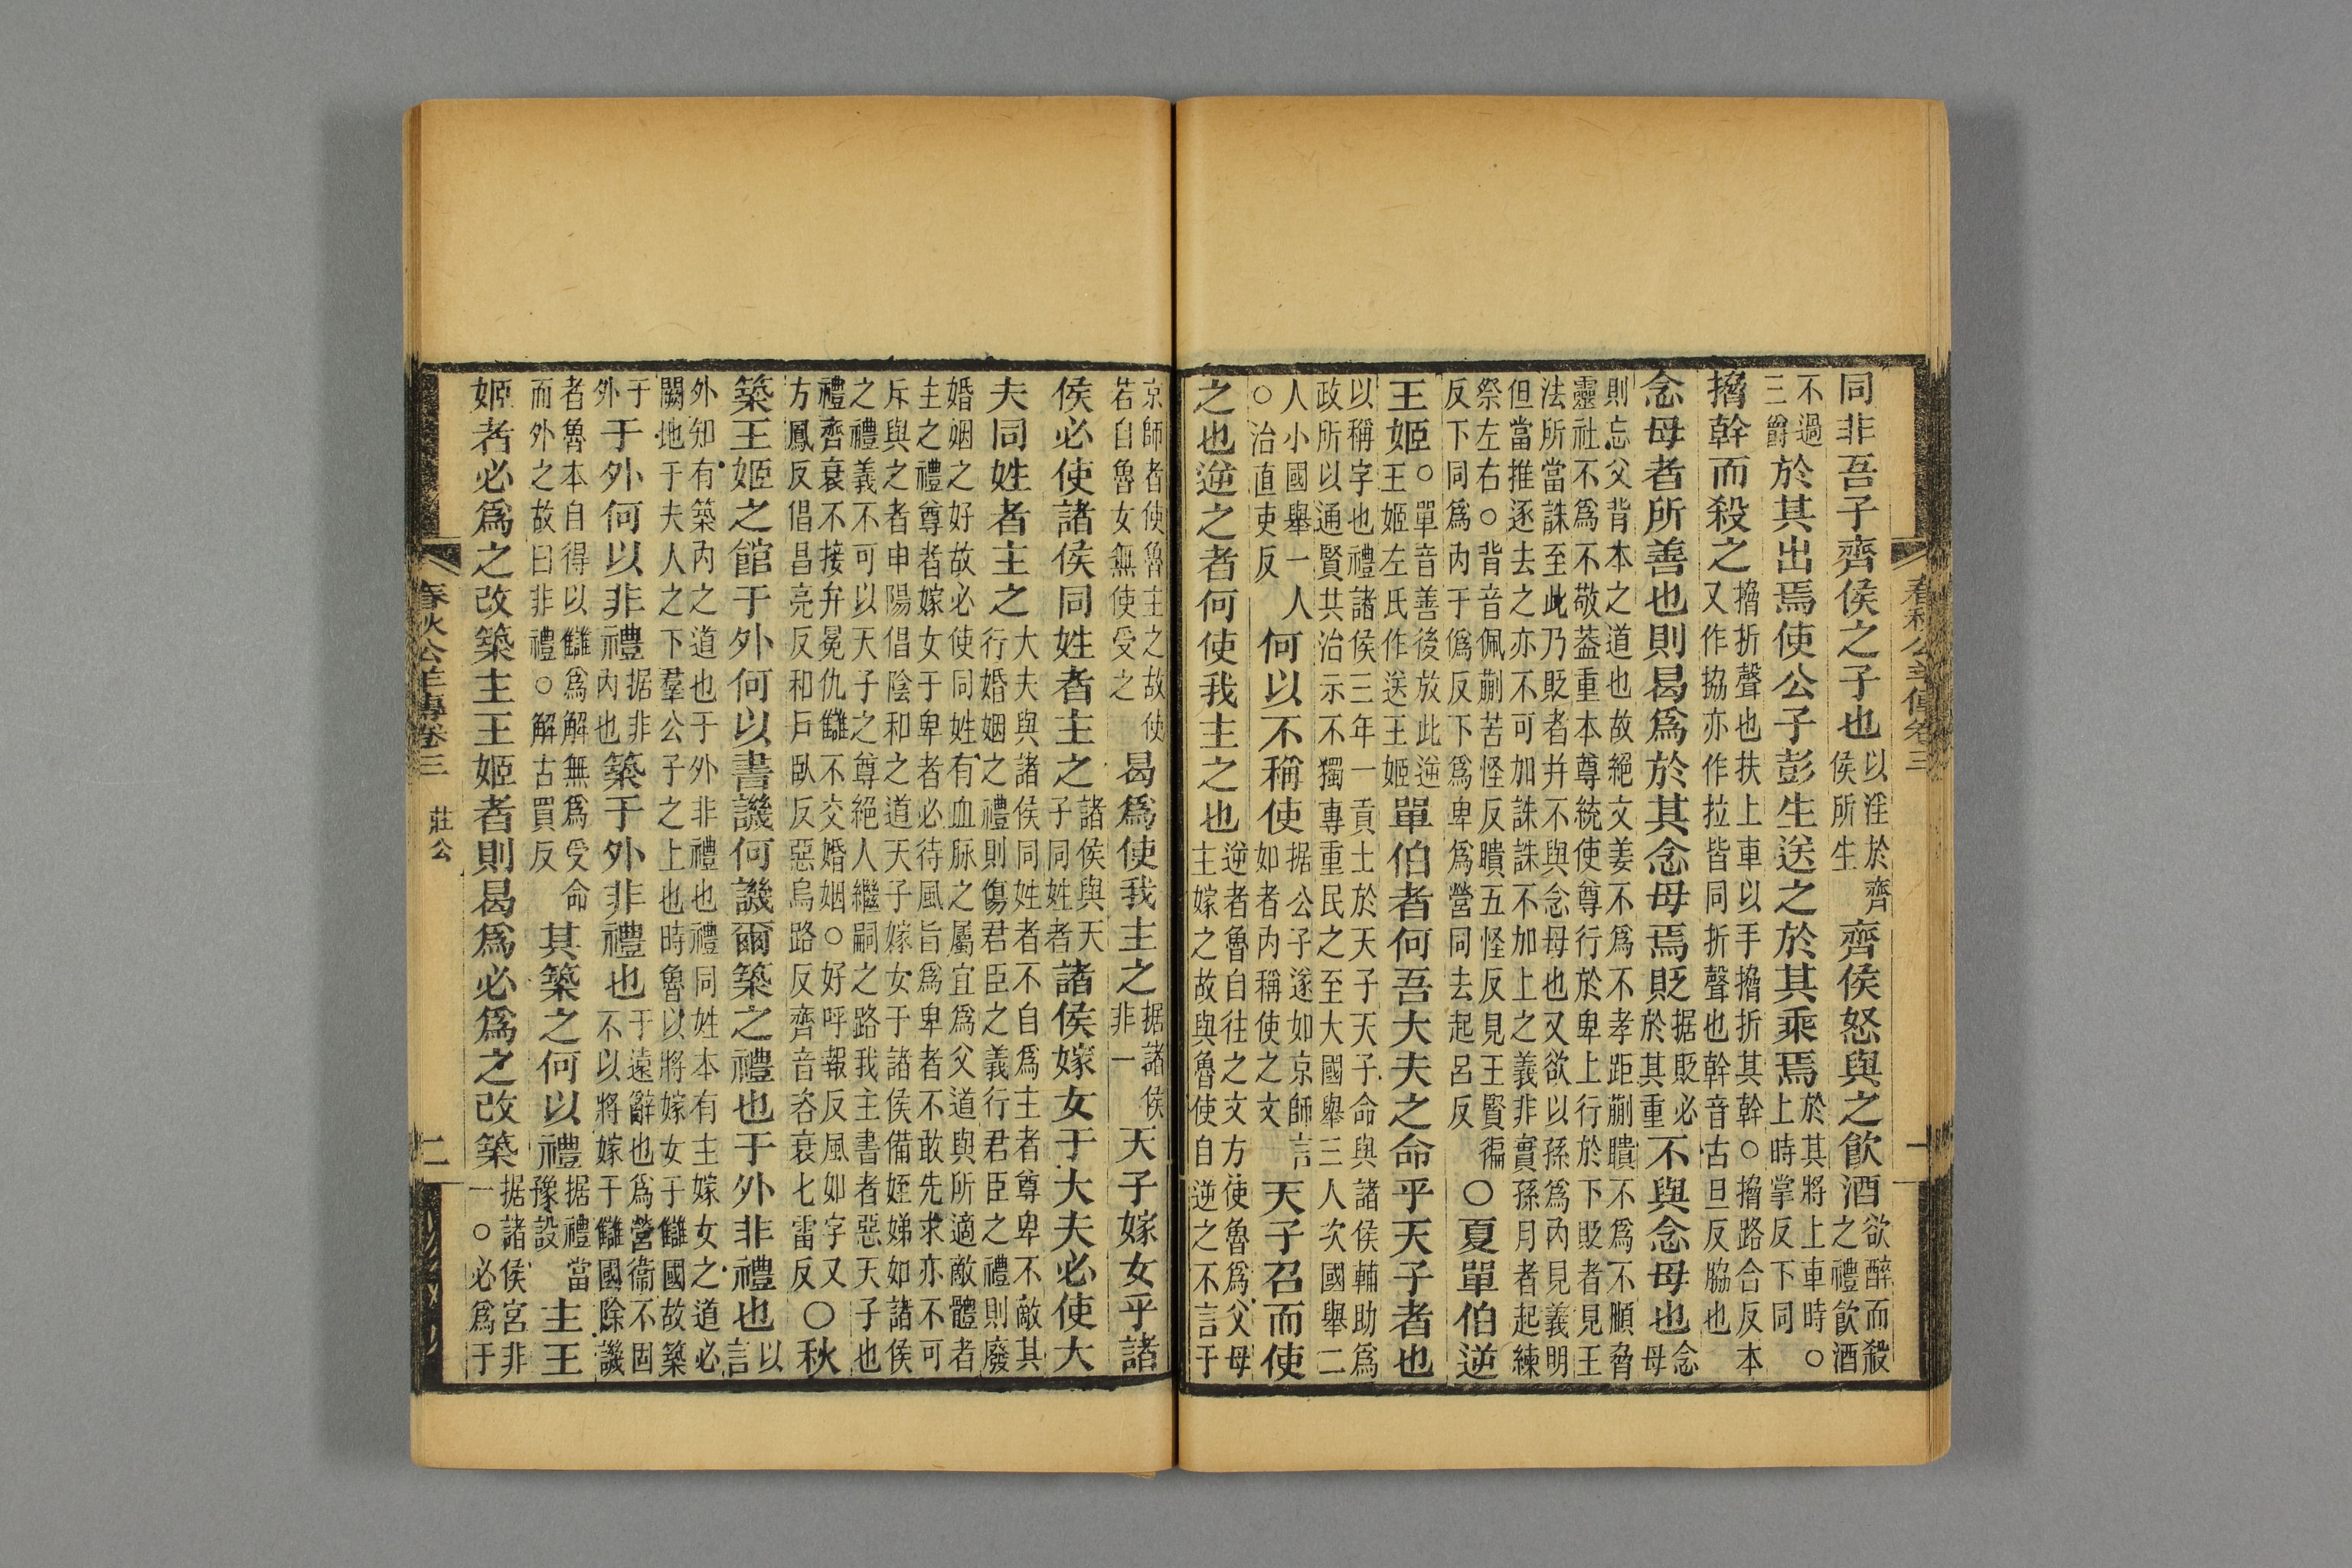 春秋公羊傳卷三
一
同非吾子齊侯之子也以淫於齊侯所生齊侯怒與之飲酒欲醉而殺之禮飲酒
不過三爵於其出焉使公子彭生送之於其乘焉於其將上車時○上時掌反下同
搚幹而殺之搚折聲也扶上車以手搚折其幹○搚路合反本又作拹亦作拉皆同折聲也幹音古旦反脇也
念母者所善也則曷爲於其念母焉貶据貶必於其重不與念母也念母
則忘父背本之道也故絕文姜不爲不孝距蒯聵不爲不順脅
靈社不爲不敬葢重本尊統使尊行於卑上行於下貶者見王
法所當誅至此乃貶者并不與念母也又欲以孫爲內見義明
但當推逐去之亦不可加誅誅不加上之義非實孫月者起練
祭左右○背音佩蒯苦怪反聵五怪反見王賢徧
反下同爲內于僞反下爲卑爲營同去起呂反○夏單伯逆
王姬○單音善後放此逆王姬左氏作送王姬單伯者何吾大夫之命乎天子者也
以稱字也禮諸侯三年一貢士於天子天子命與諸侯輔助爲
政所以通賢共治示不獨專重民之至大國舉三人次國舉二
人小國舉一人○治直吏反何以不稱使据公子遂如京師言如者內稱使之文天子召而使
之也逆之者何使我主之也逆者魯自往之文方使魯爲父母主嫁之故與魯使自逆之不言于
京師者使魯主之故使若自魯女無使受之曷爲使我主之据諸侯非一天子嫁女乎諸
侯必使諸侯同姓者主之諸侯與天子同姓者諸侯嫁女于大夫必使大
夫同姓者主之大夫與諸侯同姓者不自爲主者尊卑不敵其行婚姻之禮則傷君臣之義行君臣之禮則廢
婚姻之好故必使同姓有血脉之屬宜爲父道與所適敵體者
主之禮尊者嫁女于卑者必待風旨爲卑者不敢先求亦不可
斥與之者申陽倡陰和之道天子嫁女于諸侯備姪娣如諸侯
之禮義不可以天子之尊絕人繼嗣之路我主書者惡天子也
禮齊衰不接弁冕仇讎不交婚姻○好呼報反風如字又
方鳳反倡昌亮反和戶臥反惡烏路反齊音咨衰七雷反○秋
築王姬之館于外何以書譏何譏爾築之禮也于外非禮也以言
外知有築內之道也于外非禮也禮同姓本有主嫁女之道必
闕地于夫人之下羣公子之上也時魯以將嫁女于讎國故築
于外于外何以非禮据非內也築于外非禮也于遠辭也爲營衞不固不以將嫁于讎國除譏
者魯本自得以讎爲解無爲受命而外之故曰非禮○解古買反其築之何以禮据禮當豫設主王
姬者必爲之改築主王姬者則曷爲必爲之改築据諸侯宮非一○必爲于
春秋公羊傳卷三
莊公
二